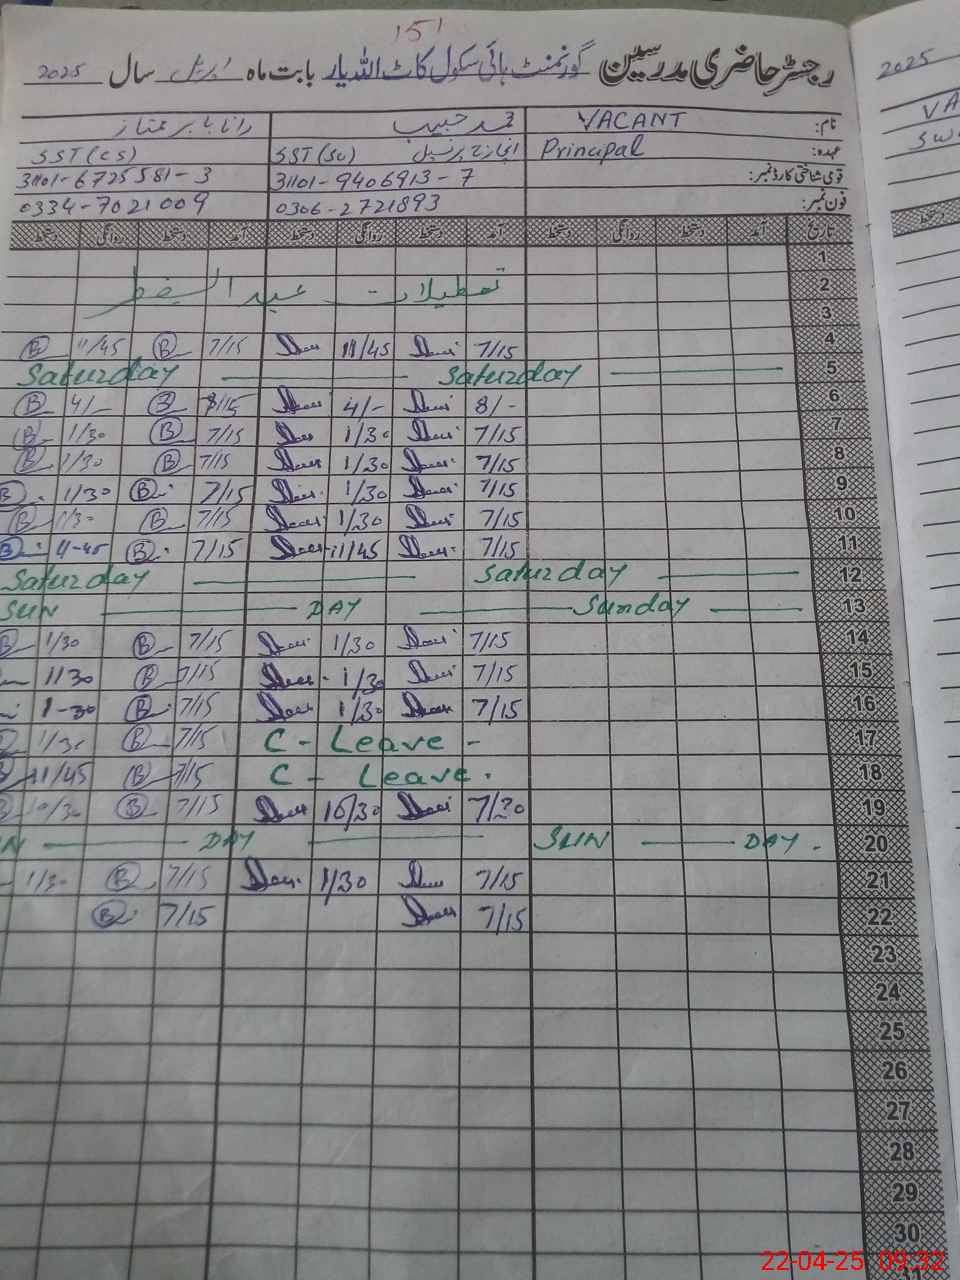 151
رجسٹر حاضری مدرسین گورنمنٹ ہائی سکول کاٹ اللہ یار بابت ماہ اپریل سال 2025
نام: VACANT محمد حبیب رانا بابر ممتاز
عہدہ: Principal انچارج پرنسپل SST(Sc) SST(CS)
قومی شناختی کارڈ نمبر: 31101-9406913-7 31101-6725581-3
فون نمبر: 0306-2721893 0334-7021009
تاریخ آمد دستخط روانگی دستخط آمد دستخط روانگی دستخط آمد دستخط روانگی دستخط
1
2 تعطیلات عید الفطر
3
4 7/15 11/45 7/15 B 11/45 B
5 Saturday Saturday
6 8/- 4/- 8/15 B 4/- B
7 7/15 1/30 7/15 B 1/30 B
8 7/15 1/30 7/15 B 1/30 B
9 7/15 1/30 7/15 B 1/30 B
10 7/15 1/30 7/15 B 1/30 B
11 7/15 11/45 7/15 B 11-45 B
12 Saturday Saturday
13 SUN DAY Sunday
14 7/15 1/30 7/15 B 1/30 B
15 7/15 1/30 7/15 B 1130
16 7/15 1/30 7/15 B 1-30
17 C - Leave - 7/15 B 1/30
18 C - Leave. 7/15 B 11/45
19 7/30 10/30 7/15 B 10/30
20 DAY SUN DAY.
21 7/15 1/30 7/15 B 1/30
22 7/15 7/15 B
23
24
25
26
27
28
29
30
31
2025
VA
22-04-25 09:32